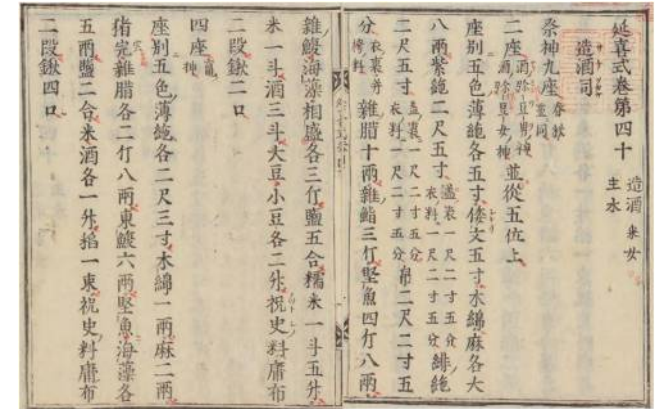 延喜式卷第四十 造酒 采女
主水
造酒司
祭神九座 春秋並同
二座 酒殿豆男神 酒殿豆女神 並從五位上
座別五色薄絁各五寸倭文五寸木綿麻各大
八兩紫絁二尺五寸 蓋裏一尺二寸五分 衣料一尺二寸五分 緋絁
二尺五寸 蓋裏一尺二寸五分 衣料一尺二寸五分 帛二尺二寸五
分 衣裏并袴料 雜腊十兩雜鮨三斤堅魚四斤八兩
雜鰒海藻相盛各三斤鹽五合糯米一斗五升
米一斗酒三斗大豆小豆各二升祝史料庸布
二段鍬二口
四座 竈神
座別五色薄絁各二尺三寸木綿一兩麻二兩
猪宍雜腊各二斤八兩東鰒六兩堅魚海藻各
五兩鹽二合米酒各一升稻一束祝史料庸布
二段鍬四口